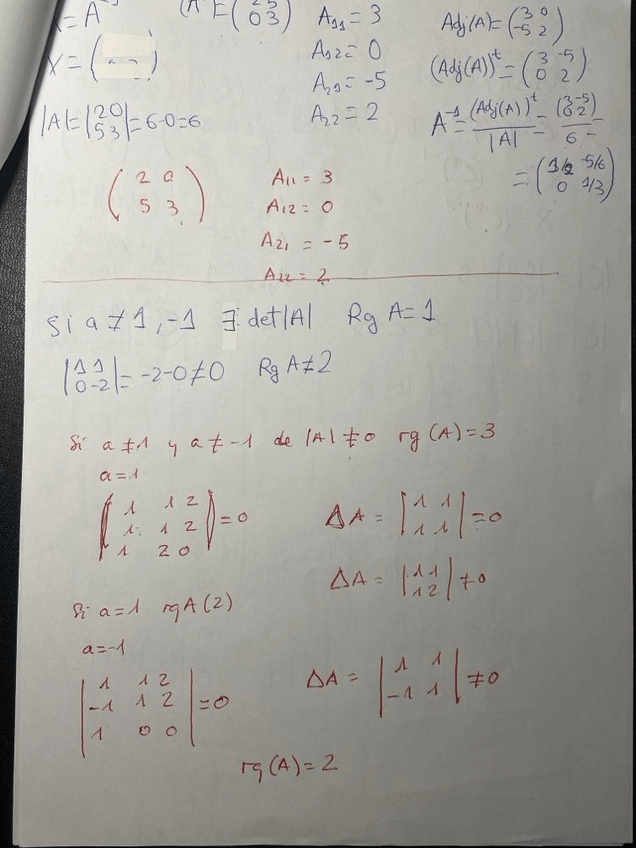 X = (
|A| = |2 0; 5 3| = 6-0=6
A₁₁ = 3
A₁₂ = 0
A₂₁ = -5
A₂₂ = 2
Adj(A) = (3 0; -5 2)
(Adj(A))ᵗ = (3 -5; 0 2)
A⁻¹ = (Adj(A))ᵗ / |A| = (3 -5; 0 2) / 6 =
= (1/2 -5/6; 0 1/3)
(2 0; 5 3)
A₁₁ = 3
A₁₂ = 0
A₂₁ = -5
A₂₂ = 2
Si a ≠ 1, -1 ∃ det|A| Rg A = 1
|1 1; 0 -2| = -2-0≠0 Rg A≠2
Si a ≠ 1 y a ≠ -1 de |A| ≠ 0 rg (A) = 3
a = 1
(1 1 2; 1 1 2; 1 2 0) = 0
ΔA = |1 1; 1 1| = 0
ΔA = |1 1; 1 2| ≠ 0
Si a = 1 rg A (2)
a = -1
|1 1 2; -1 1 2; 1 0 0| = 0
ΔA = |1 1; -1 1| ≠ 0
rg (A) = 2